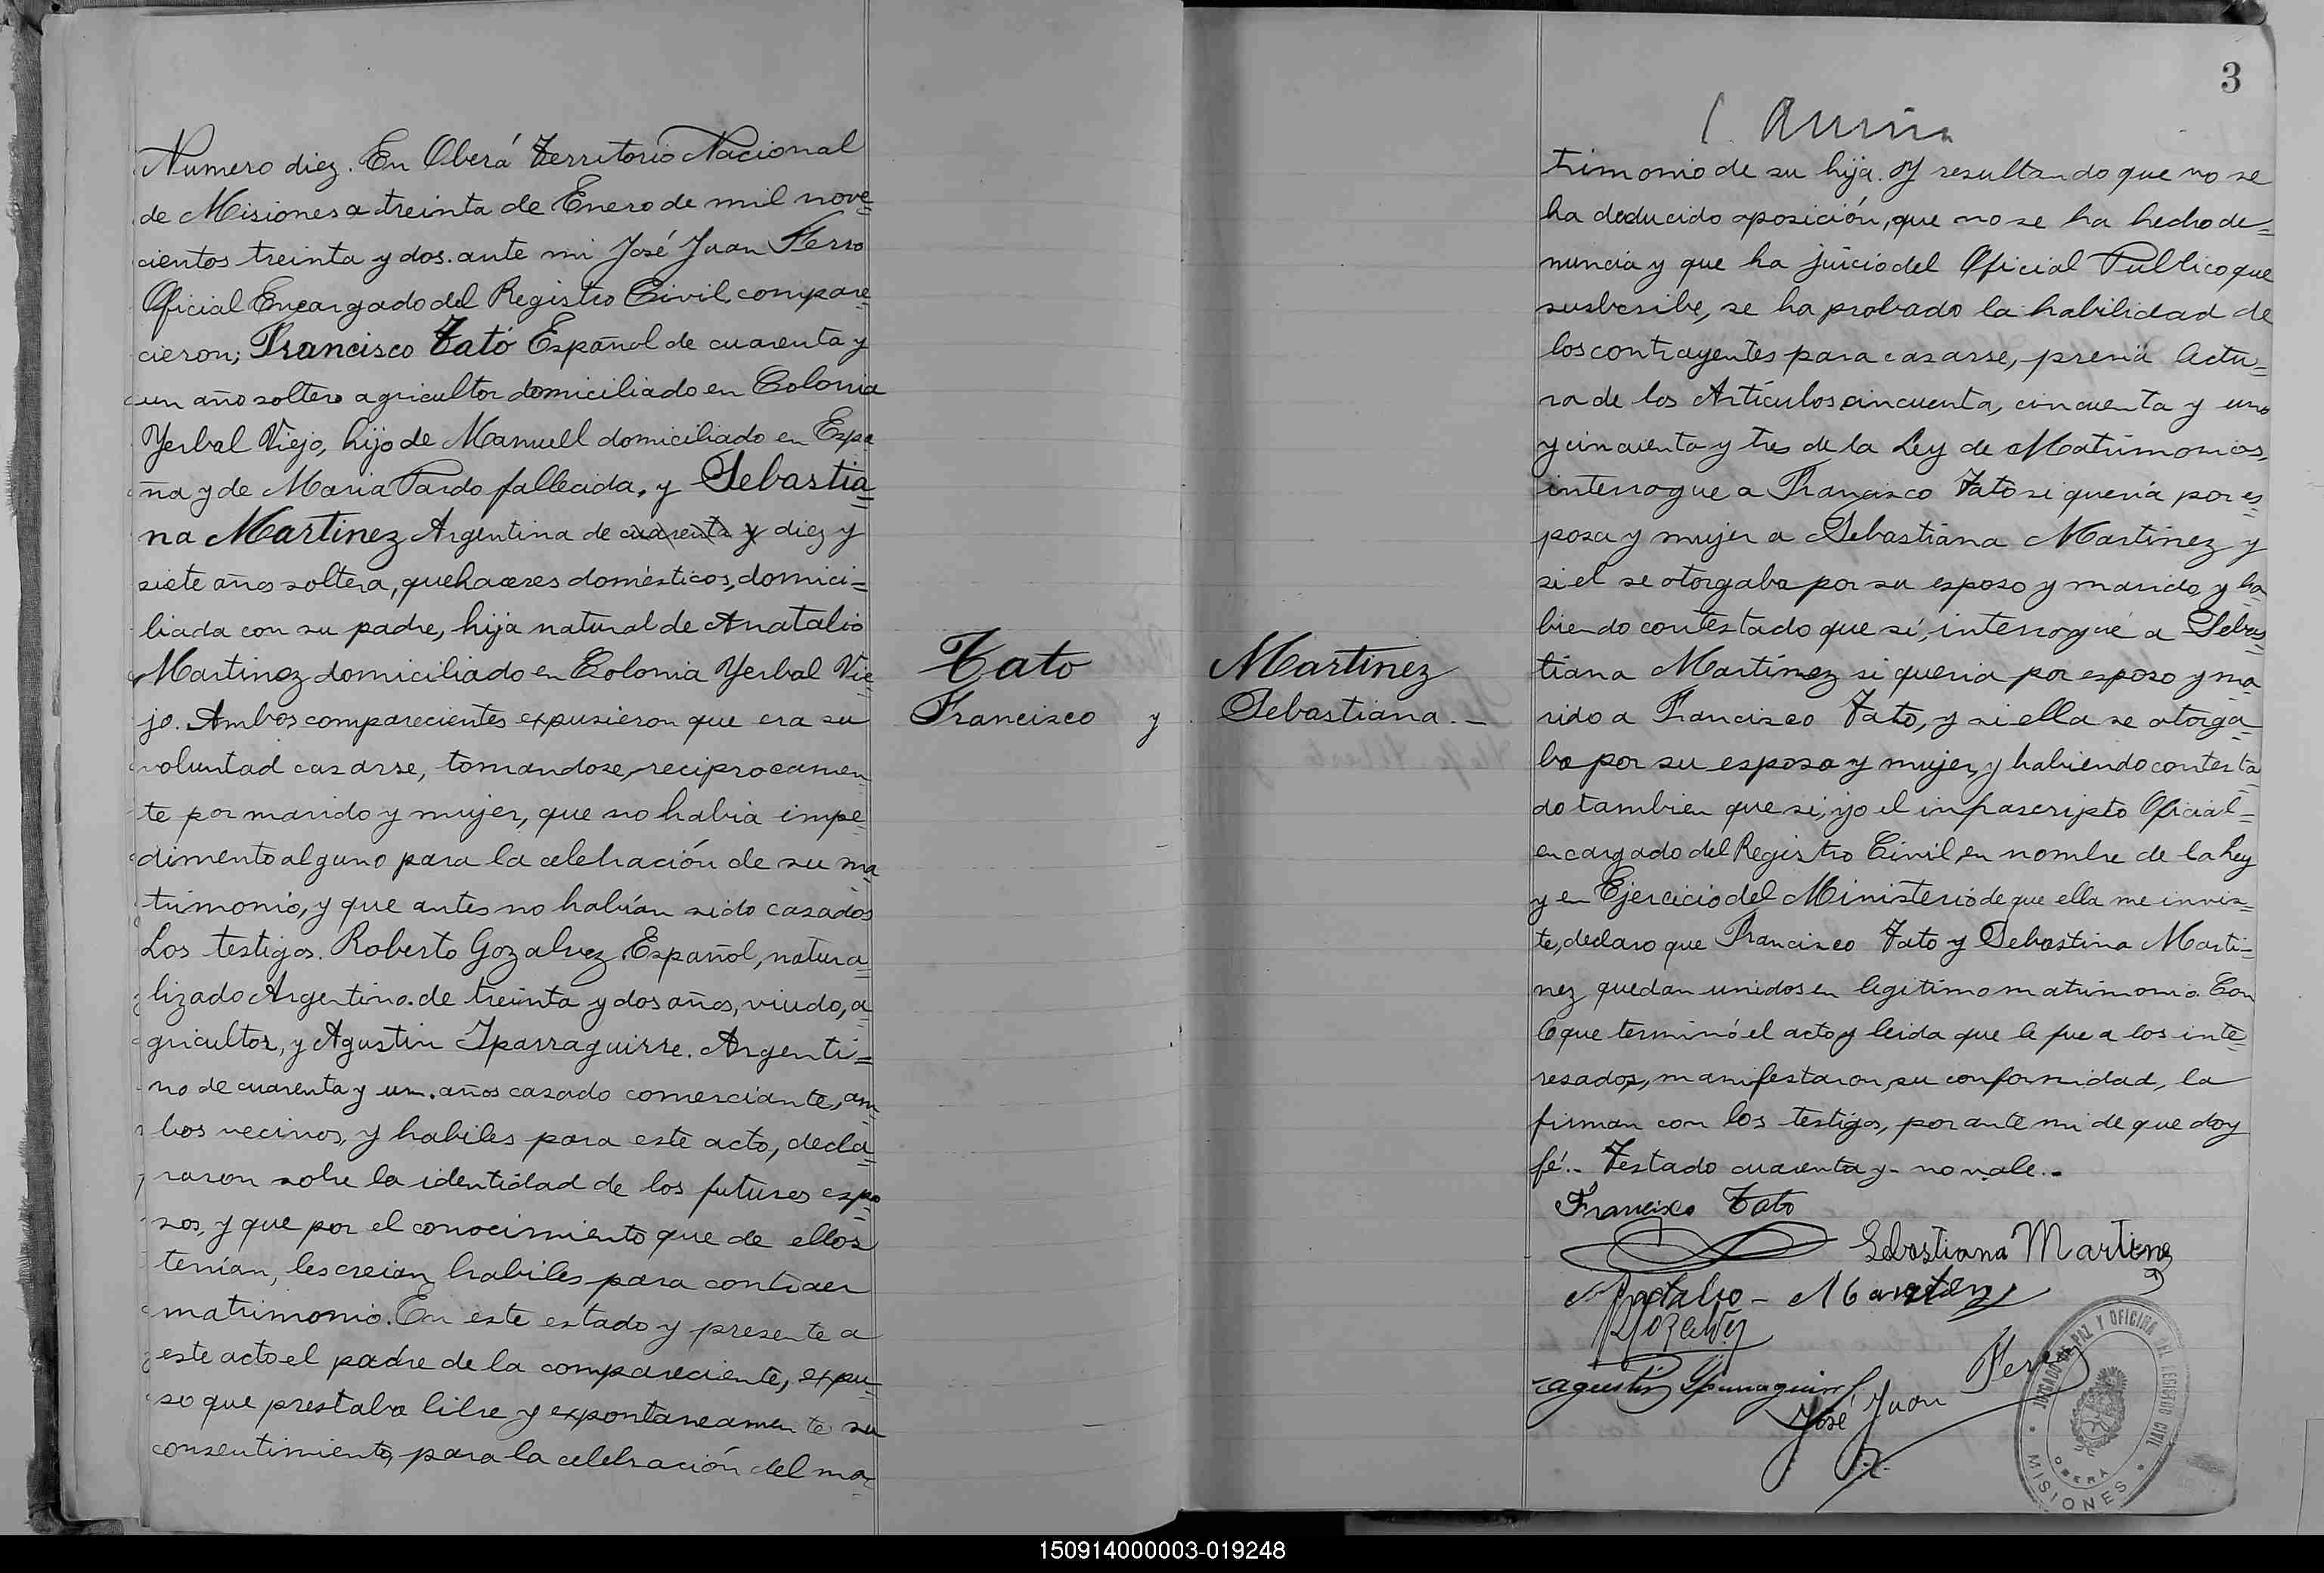 Numero diez. En Oberá Territorio Nacional
de Misiones a treinta de Enero de mil nove=
cientos treinta y dos. ante mi José Juan Ferro
Oficial Encargado del Registro Civil, compare=
cieron; Francisco Tató Español de cuarenta y
un año soltero agricultor domiciliado en Colonia
Yerbal Viejo, hijo de Manuell domiciliado en Espa=
ña y de Maria Pardo fallecida, y Sebastia=
na Martinez Argentina de cuarenta y diez y
siete años soltera, quehaceres domésticos, domici=
liada con su padre, hija natural de Anatalio
Martinez domiciliado en Colonia Yerbal Vie=
jo. Ambos comparecientes expusieron que era su
voluntad casarse, tomandose, reciprocamen
te por marido y mujer, que no habia impe=
dimento alguno para la celebración de su ma=
trimonio, y que antes no habían sido casados
Los testigos. Roberto Gozalvez Español, natura=
lizado Argentino. de treinta y dos años, viudo, a=
gricultor, y Agustin Iparraguirre. Argenti=
no de cuarenta y un. años casado comerciante, am=
bos vecinos, y habiles para este acto, decla=
raron sobre la identidad de los futuros espo=
sos, y que por el conocimiento que de ellos
tenían, les creian habiles para contraer
matrimonio. En este estado y presente a
este acto el padre de la compareciente, expu=
so que prestaba libre y expontaneamente su
consentimiento, para la celebración del ma=
Tato
Francisco y
Martinez
Sebastiana.-
3
trimonio de su hija. Y resultando que no se
ha deducido oposición, que no se ha hecho de=
nuncia y que ha juicio del Oficial Publico que
susbcribe, se ha probado la habilidad de
los contrayentes para casarse, previa lectu=
ra de los Artículos cincuenta, cincuenta y uno
y cincuenta y tres de la Ley de Matrimonios,
interrogue a Francisco Tato si quería por es=
posa y mujer a Sebastiana Martinez y
si el se otorgaba por su esposo y marido, y ha=
biendo contestado que sí, interrogué a Sebas=
tiana Martinez si queria por esposo y ma=
rido a Francisco Tato, y si ella se otorga=
ba por su esposa y mujer, y habiendo contesta=
do tambien que si, yo el infrascripto Oficial=
encargado del Registro Civil, en nombre de la Ley
y en Ejercicio del Ministerio de que ella me invis=
te, declaro que Francisco Tato y Sebastina Marti=
nez quedan unidos en legitimo matrimonio. Con
lo que terminó el acto y leida que le fue a los inte=
resados, manifestaron, su conformidad, la
firman con los testigos, por ante mi de que doy
fé.- Testado cuarenta y- no vale.-
Francisco Tato
Sebastiana Martinez
Anatalio - Martinez
RGozalvez
Agustin Iparraguirre
José Juan Ferro
JUZGADO DE PAZ Y OFICINA DEL REGISTRO CIVIL
OBERA
MISIONES
150914000003-019248